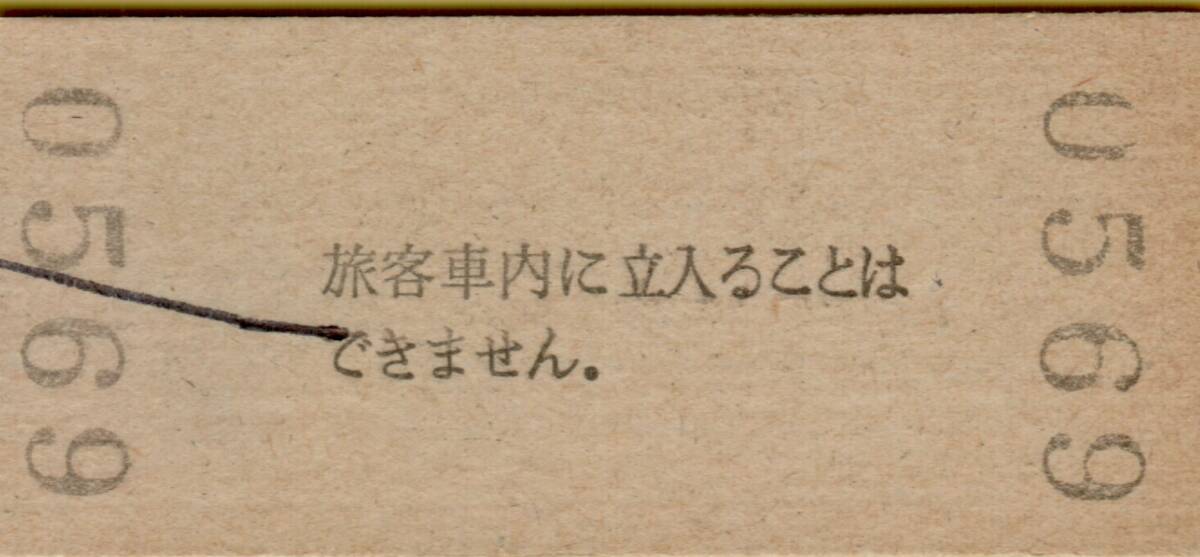 0569
旅客車内に立入ることは
できません。
0569